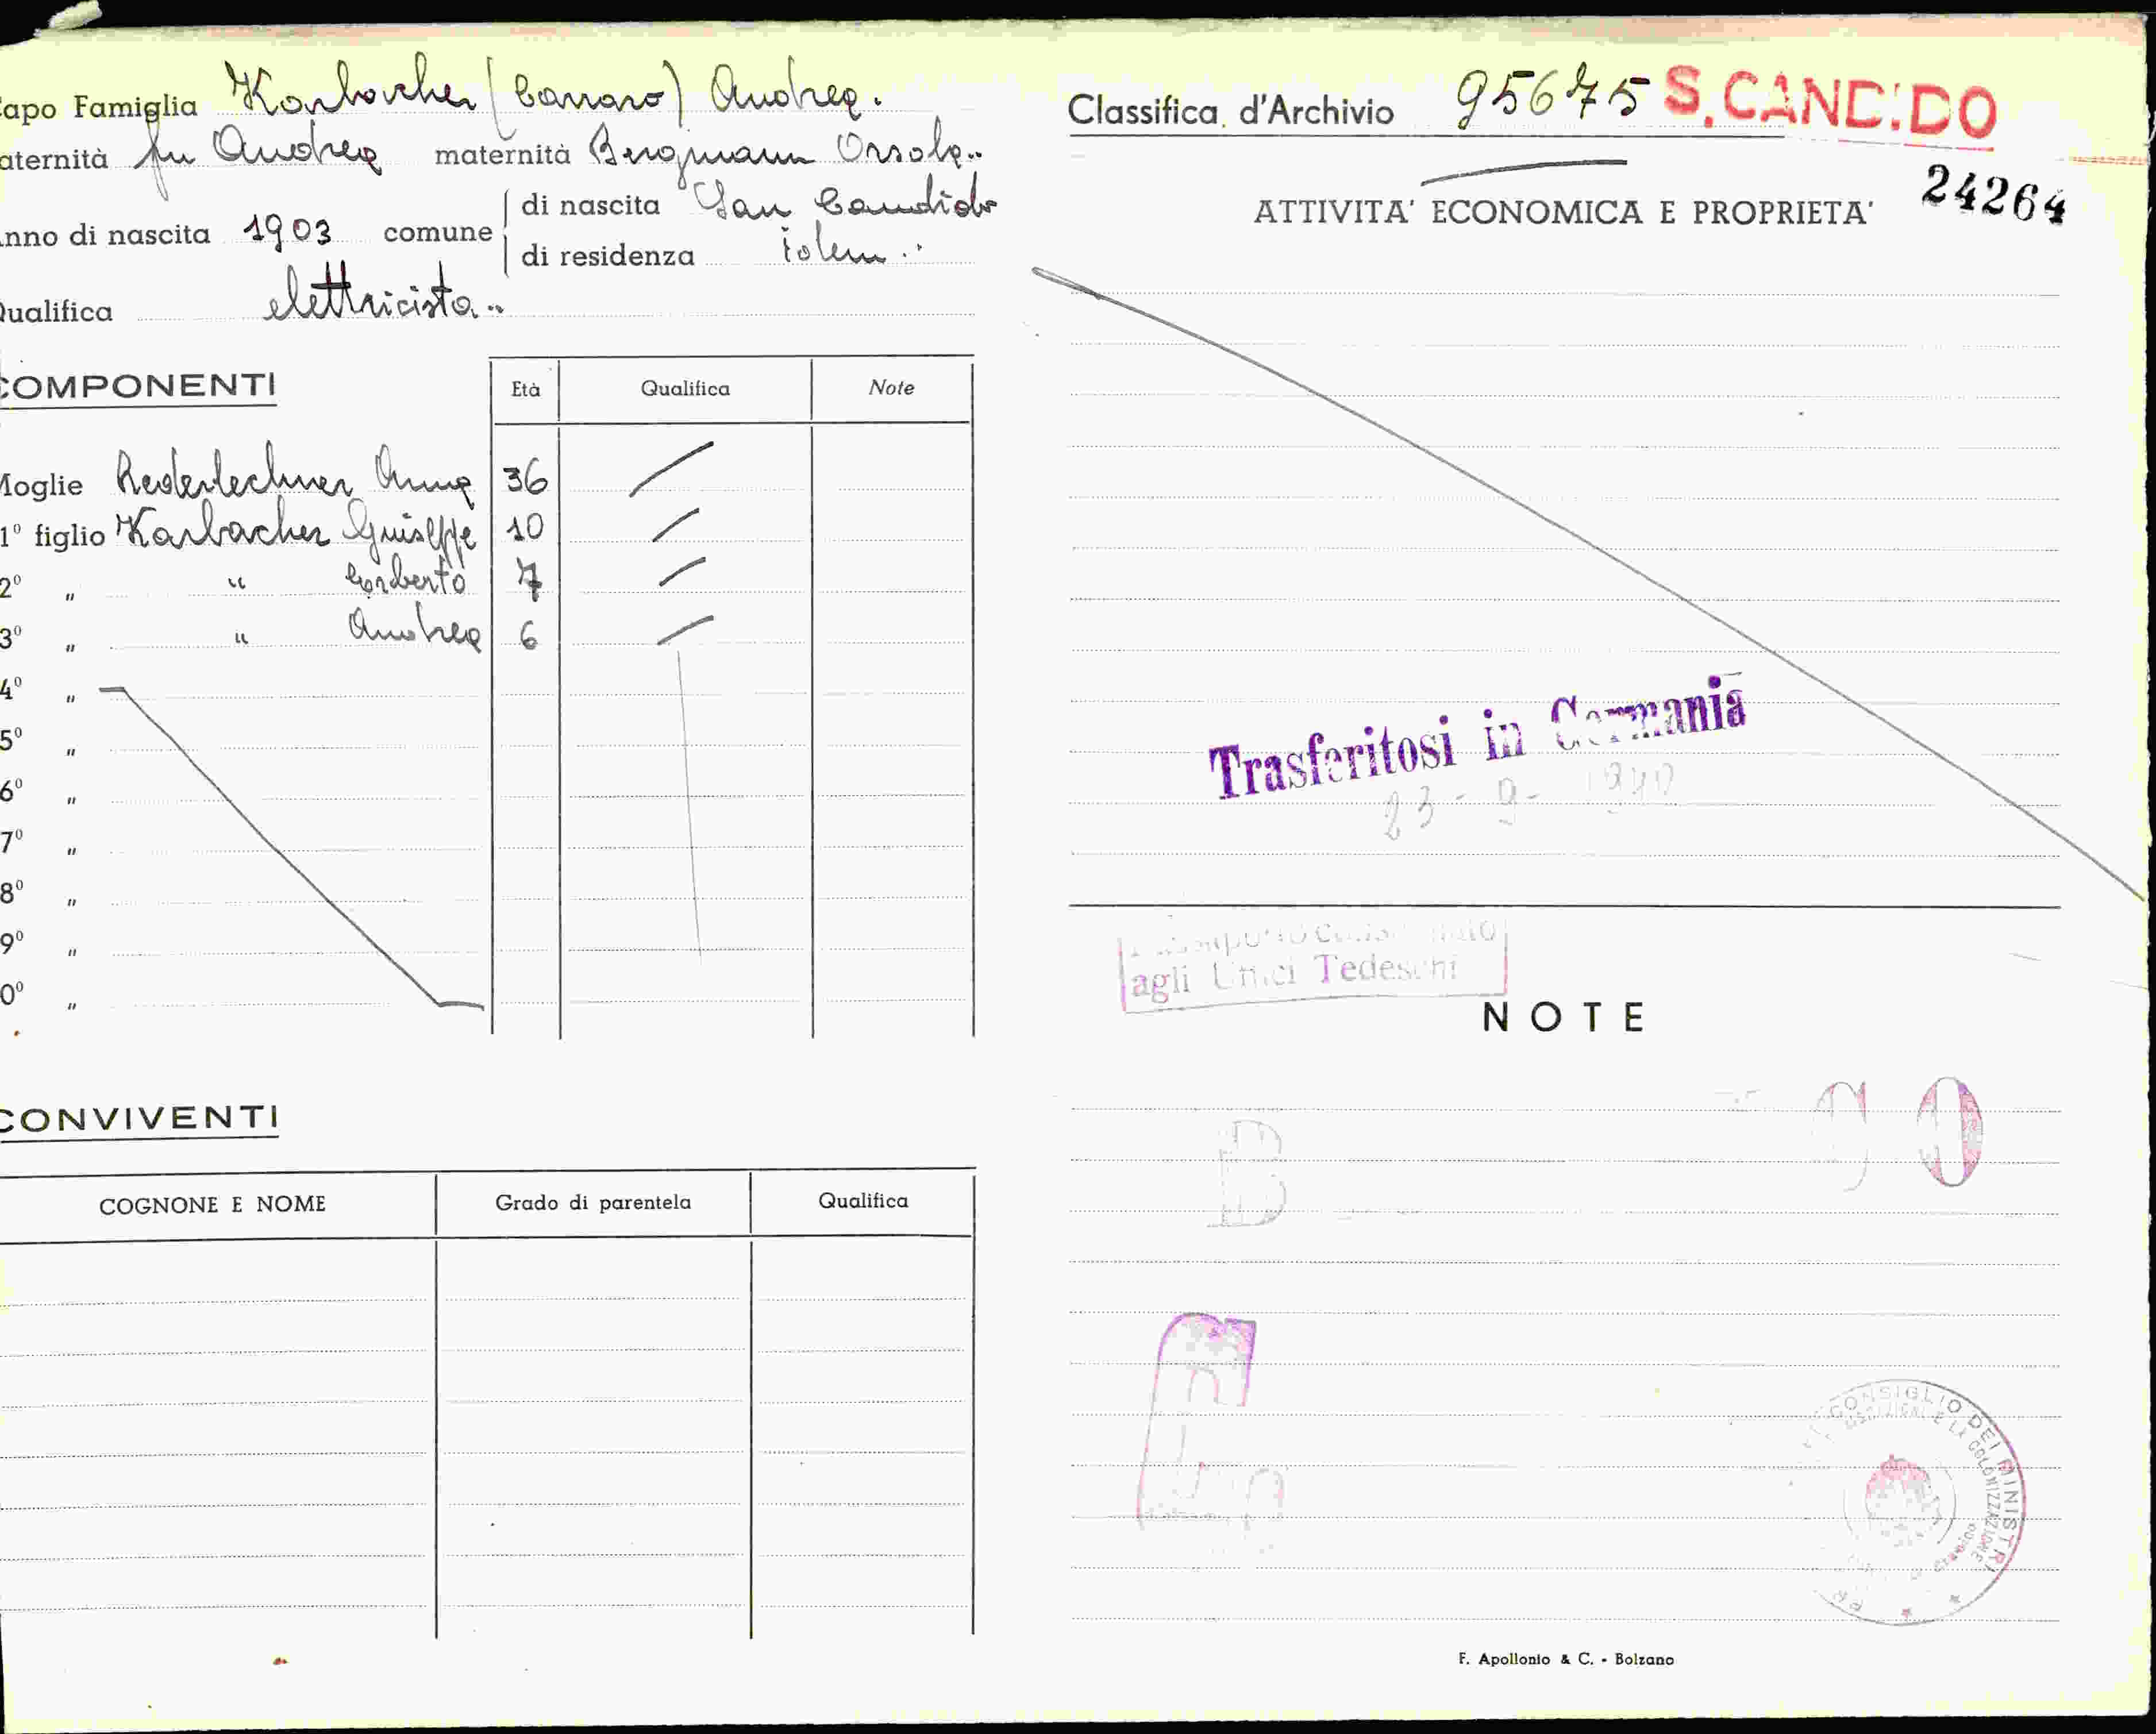 apo Famiglia Karbacher (Carraro) Andrea.
aternità fu Andrea maternità Bergmann Orsola..
nno di nascita 1903 comune
di nascita San Candido
di residenza idem.
Qualifica elettricista..
COMPONENTI
Età Qualifica Note
Moglie Rederlechner Anna 36
1° figlio Karbacher Guiseppe 10
2° „ " Corberto 7
3° „ " Andrea 6
4° „
5° „
6° „
7° „
8° „
9° „
0° „
CONVIVENTI
COGNONE E NOME Grado di parentela Qualifica
Classifica d'Archivio 95675 S.CANDIDO
24264
ATTIVITA' ECONOMICA E PROPRIETA'
Trasferitosi in Germania
23-9-1940
agli Uffici Tedeschi
NOTE
B
CONSIGLIO DEI MINISTRI
E LA COLONIZZAZIONE
F. Apollonio & C. - Bolzano